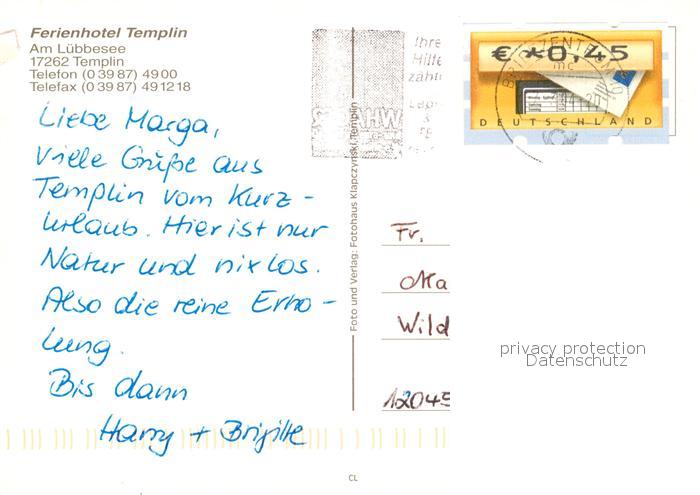 Ferienhotel Templin
Am Lübbesee
17262 Templin
Telefon (0 39 87) 49 00
Telefax (0 39 87) 49 12 18
Liebe Marga,
viele Grüße aus
Templin vom Kurz-
urlaub. Hier ist nur
Natur und nix los.
Also die reine Erho-
lung.
Bis dann
Harry + Brigitte
Foto und Verlag: Fotohaus Klapczynski, Templin
Ihre
Hilfe
zählt
€ *0,45
BRIEFZENTRUM
mc
DEUTSCHLAND
Fr.
Ma
Wild
12045
privacy protection
Datenschutz
CL